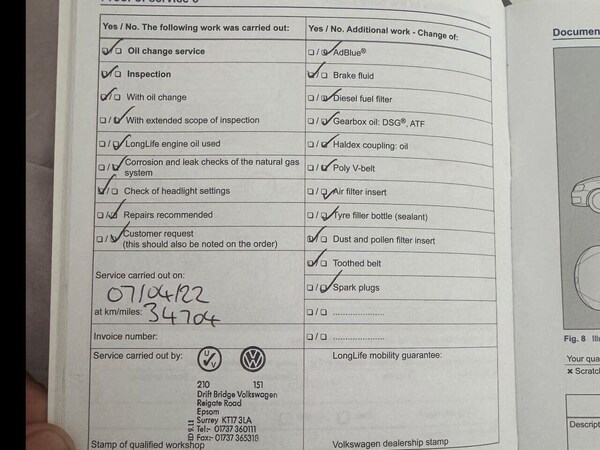 Yes / No. The following work was carried out:
☑/☐ Oil change service
☑/☐ Inspection
☑/☐ With oil change
☐/☑ With extended scope of inspection
☐/☑ LongLife engine oil used
☐/☑ Corrosion and leak checks of the natural gas
system
☑/☐ Check of headlight settings
☐/☑ Repairs recommended
☐/☑ Customer request
(this should also be noted on the order)
Service carried out on:
07/04/22
at km/miles: 34704
Invoice number:
Service carried out by:
210 151
Drift Bridge Volkswagen
Reigate Road
Epsom
Surrey KT17 3LA
Tel:- 01737 360111
Fax:- 01737 365318
Stamp of qualified workshop
Yes / No. Additional work - Change of:
☐/☑ AdBlue®
☑/☐ Brake fluid
☐/☑ Diesel fuel filter
☐/☑ Gearbox oil: DSG®, ATF
☐/☑ Haldex coupling: oil
☐/☑ Poly V-belt
☐/☑ Air filter insert
☐/☑ Tyre filler bottle (sealant)
☑/☐ Dust and pollen filter insert
☑/☐ Toothed belt
☐/☑ Spark plugs
☐/☐ .....................
☐/☐ .....................
LongLife mobility guarantee:
Volkswagen dealership stamp
Documen
Fig. 8 Ill
Your qua
× Scratc
Descript